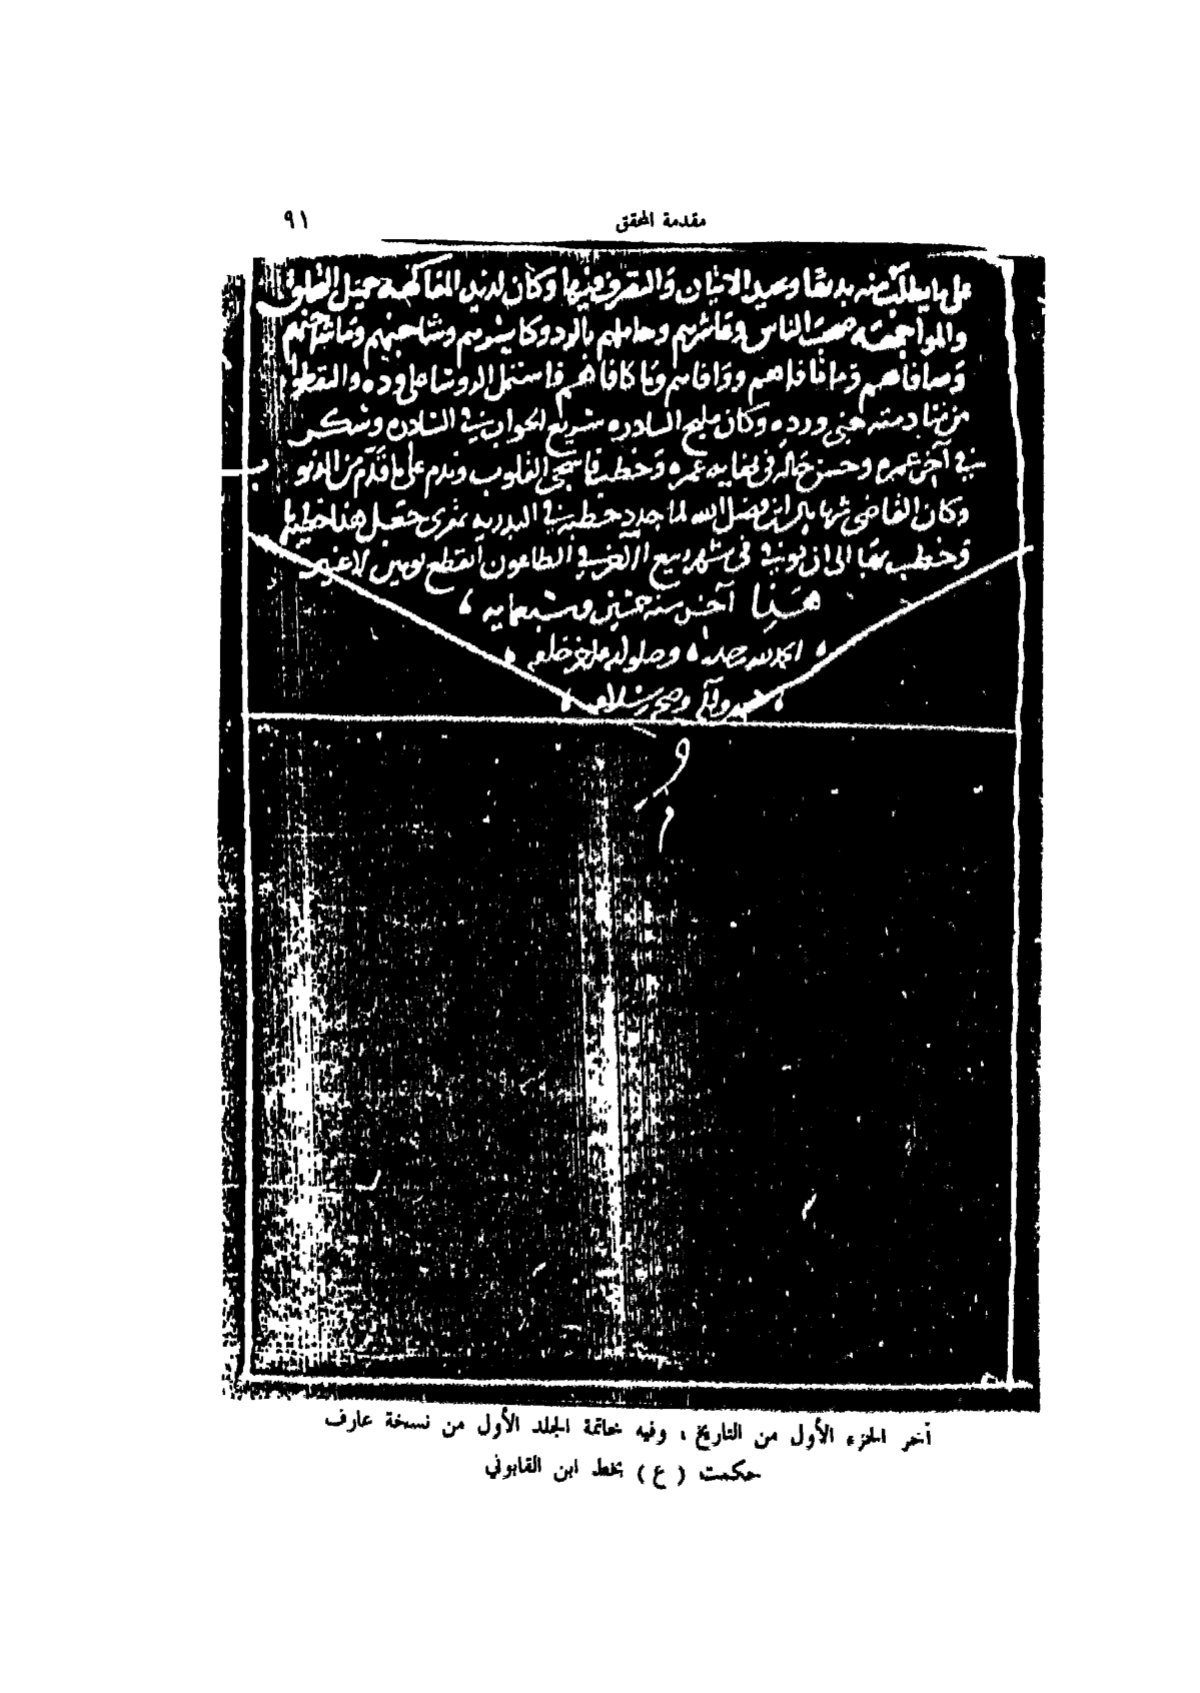 مقدمة المحقق ٩١
على ما يطلب منه بديعًا وعبيد الاتيان والتصرف فيها وكان لذيذ المفاكهة جميل
والمواجهة صحب الناس وعاشرهم وحاملهم بالود وكاشرهم وشاحنهم
وصافاهم وما نافاهم ووافاهم وما كافاهم فاستمل الروشا على وده والتقطوا
من دمته جني ورده وكان مليح النادره سريع الجواب في النادره وشكر
في آخر عمره وحسن حاله في عمره وخطب فاشجى القلوب وندم على ما قدم من الذنو
ب
وكان القاضي شهاب الدين ابن فضل الله لما جدد خطبة في البدريه بمقرى جعل هذا خطيبا
وخطب بها الى ان توفي في شهر ربيع الآخر في الطاعون انقطع يومين لا غير
هذا آخر سنة خمسين وسبعمايه
الحمد لله وحده وصلواته على خير خلقه
محمد وآله وصحبه وسلامه
آخر الجزء الأول من التاريخ ، وفيه خاتمة المجلد الأول من نسخة عارف
حكمت ( ع ) بخط ابن القابوني